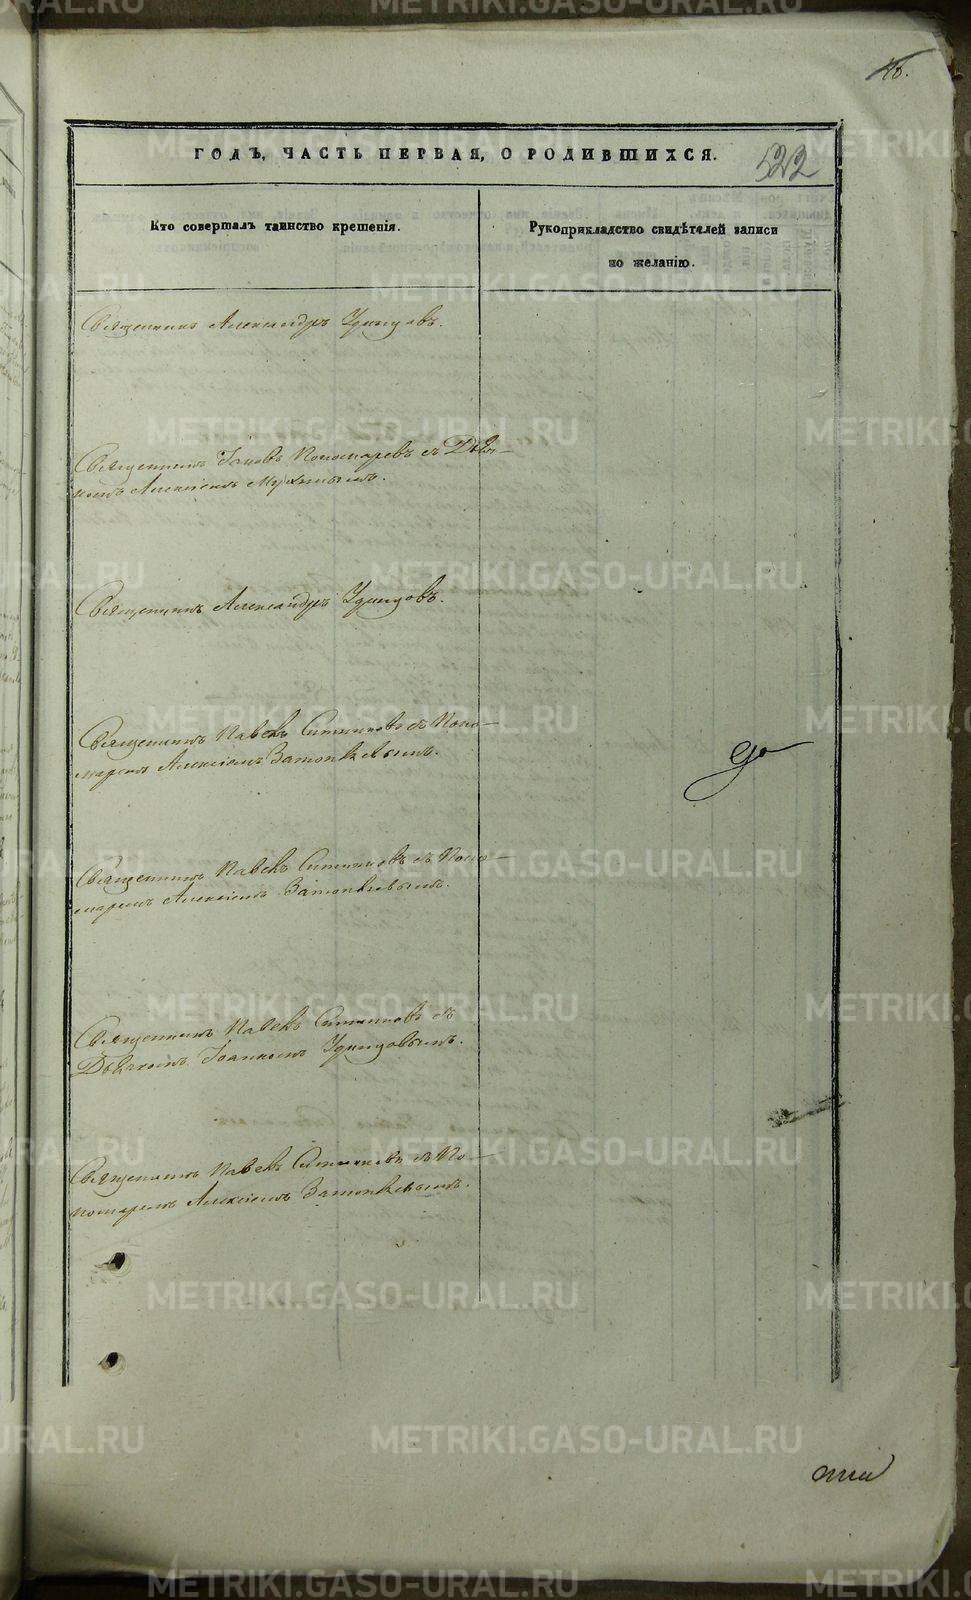 46.
ГОДЪ, ЧАСТЬ ПЕРВАЯ, О РОДИВШИХСЯ.
522
Кто совершалъ таинство крещенія.
Рукоприкладство свидѣтелей записи
по желанію.
Священникъ Александръ Удинцовъ.
Священникъ Іаковъ Пономаревъ съ Дья-
комъ Алексіемъ
Священникъ Александръ Удинцовъ.
Священникъ Павелъ Ситниковъ съ Поно-
маремъ Алексіемъ Затопляевымъ.
Священникъ Павелъ Ситниковъ съ Поно-
маремъ Алексіемъ Затопляевымъ.
Священникъ Павелъ Ситниковъ съ
Дьякомъ Іоанномъ Удинцовымъ.
Священникъ Павелъ Ситниковъ съ По-
номаремъ Алексіемъ Затопляевымъ.
METRIKI.GASO-URAL.RU